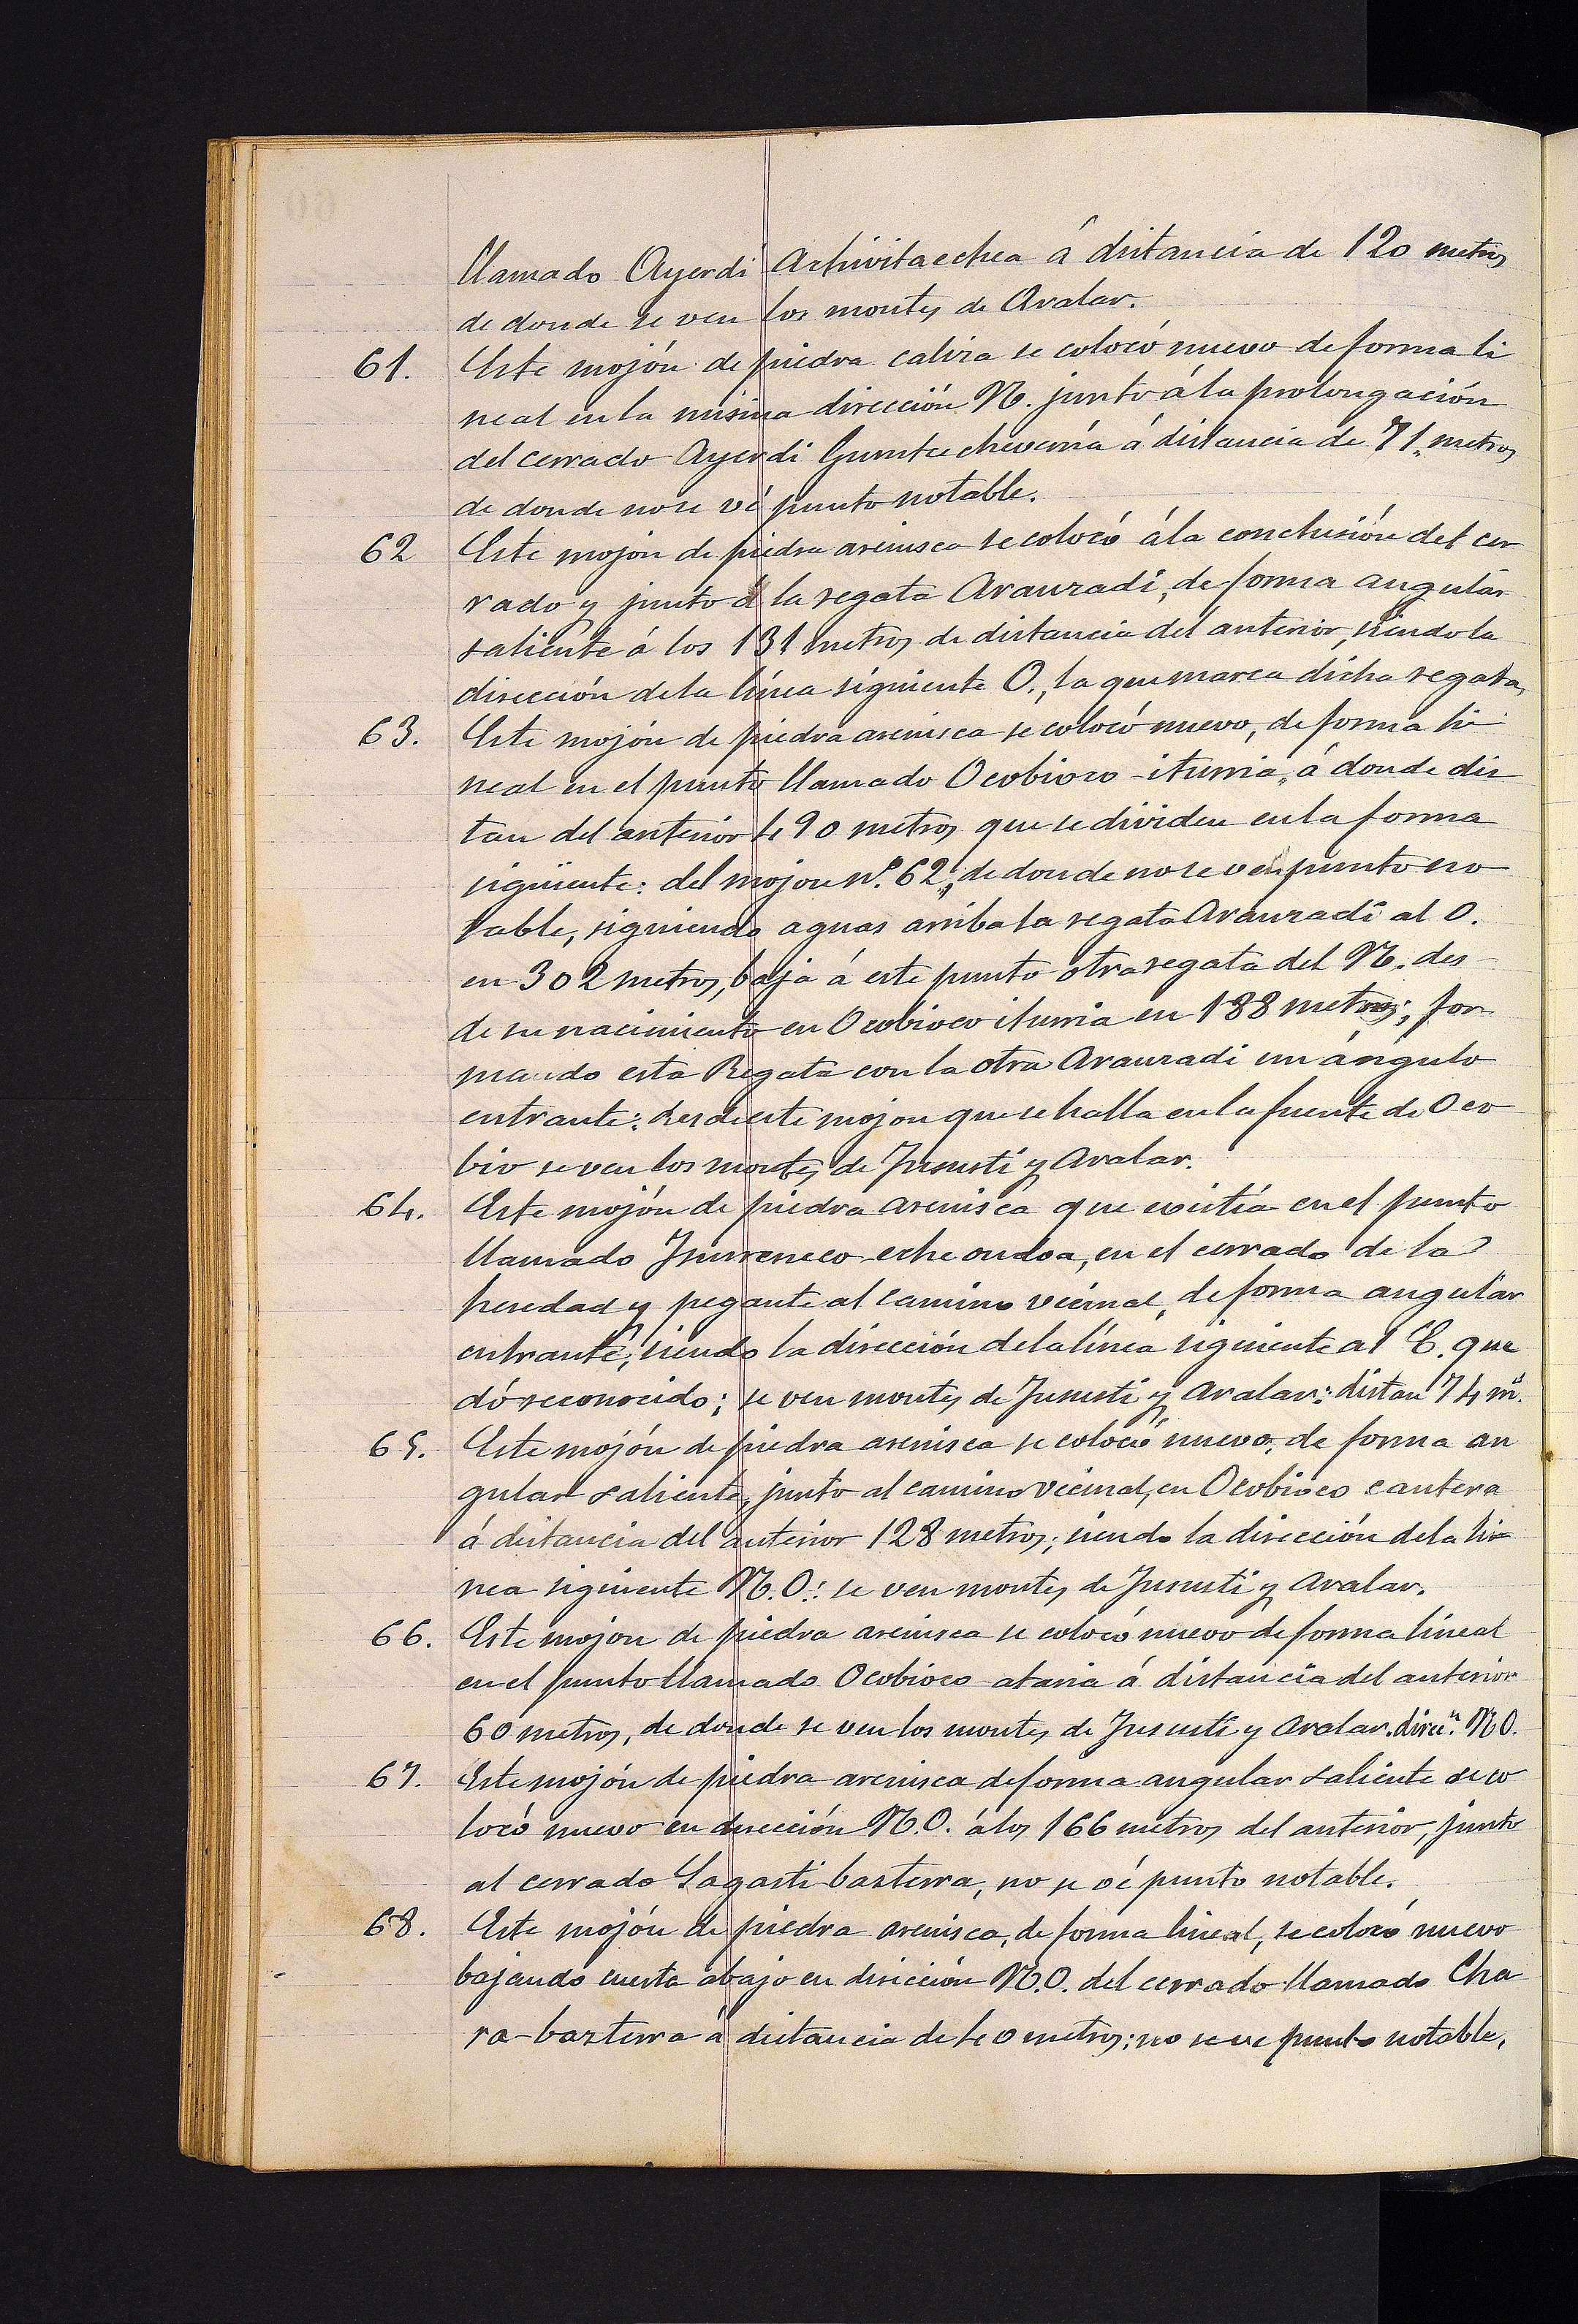 llamado Ayerdi Archivitaechea á distancia de 120 metros
de donde se ven los montes de Aralar.
61. Este mojón de piedra caliza se colocó nuevo de forma li
neal en la misma dirección N. junto á la prolongación
del cerrado Ayerdi á distancia de 71 metros
de donde no se vé punto notable.
62 Este mojon de piedra arenisca se colocó á la conclusión del cer
rado y junto á la regata Arauzadi, de forma angular
saliente á los 131 metros de distancia del anterior, siendo la
dirección de la línea siguiente O., la que marca dicha regata,
63. Este mojón de piedra arenisca se colocó nuevo, de forma li
neal en el punto llamado Ocobioco-iturria, á donde dis
tan del anterior 490 metros que se dividen en la forma
siguiente: del mojon nº. 62, de donde no se ven punto no
table, siguiendo aguas arriba la regata Arauzadi al O.
en 302 metros, baja á este punto otra regata del N. des
de su nacimiento en Ocobioco iturria en 188 metros; for
mando esta Regata con la otra Arauzadi un ángulo
entrante: desde este mojon que se halla en la fuente de Oco
bio se ven los montes de Jrumusti y Aralar.
64. Este mojón de piedra arenisca que existía en el punto
llamado echeondoa, en el cerrado de la
heredad y pegante al camino vecinal, de forma angular
entrante, siendo la dirección de la línea siguiente al E. que
dó reconocido; se ven montes de Jrumusti y Aralar: distan 74 m.
65. Este mojón de piedra arenisca se colocó nuevo, de forma an
gular saliente, junto al camino vecinal, en Ocobioco cantera
á distancia del anterior 128 metros; siendo la dirección de la lí
nea siguiente N.O.: se ven montes de Jrumusti y Aralar.
66. Este mojon de piedra arenisca se colocó nuevo de forma lineal
en el punto llamado Ocobioco ataria á distancia del anterior
60 metros, de donde se ven los montes de Jrumusti y Aralar. direcn. N.O.
67. Este mojón de piedra arenisca de forma angular saliente se co
locó nuevo en dirección N.O. á los 166 metros del anterior, junto
al cerrado Sagasti-bazterra, no se vé punto notable.
68. Este mojón de piedra arenisca, de forma lineal, se colocó nuevo
bajando cuesta abajo en dirección N.O. del cerrado llamado Cha
ra-bazterra á distancia de 40 metros; no se ve punto notable,